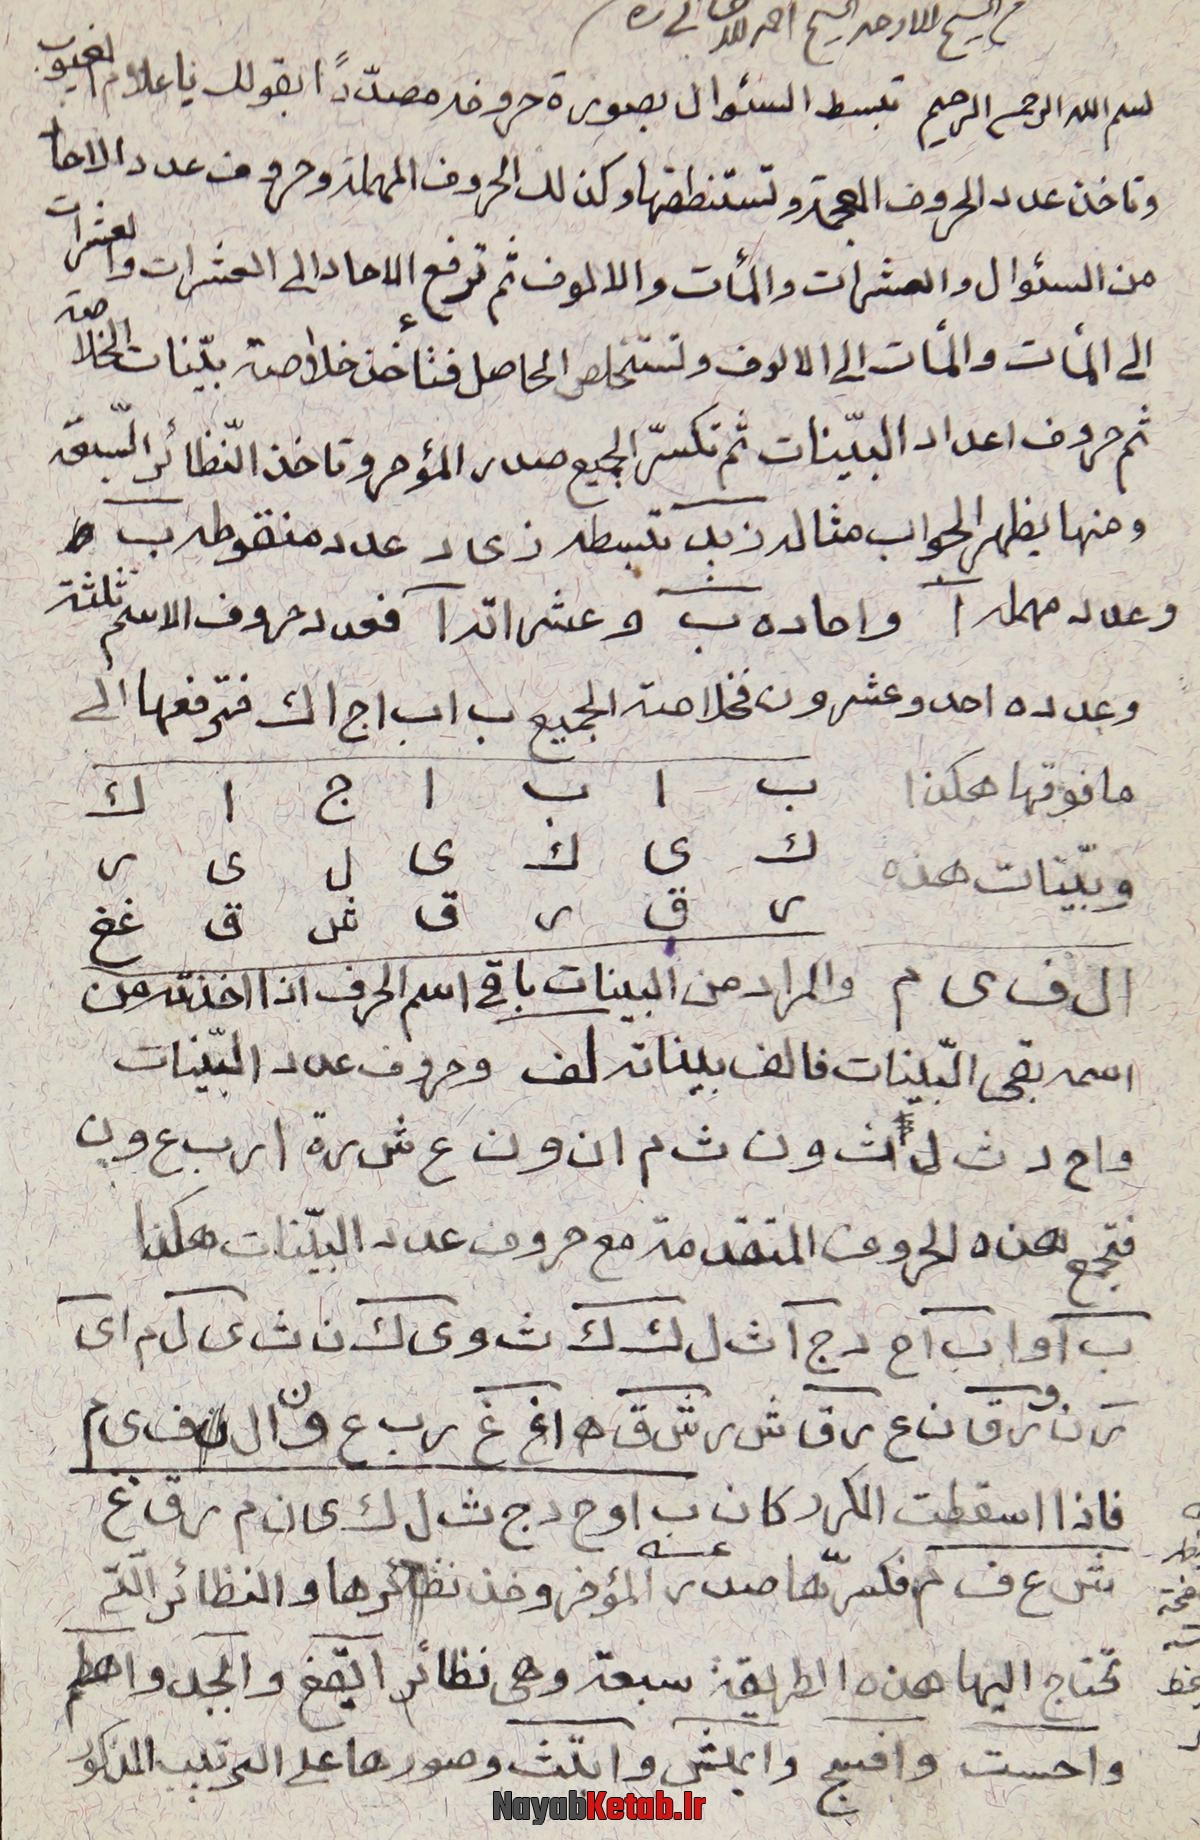 من الشيخ الاوحد الشيخ احمد
بسم الله الرحمن الرحيم تبسط السئوال بصورة حروفه مصدّرًا بقولك يا علام الغيوب
وتاخذ عدد الحروف المعجمة وتستنطقها وكذلك الحروف المهملة وحروف عدد الاحاد
من السئوال والعشرات والمأت والالوف ثم ترفع الاحاد الى العشرات والعشرات
الى المأت والمأت الى الالوف وتستخلص الحاصل فتأخذ خلاصة بيّنات الخلاصة
ثم حروف اعداد البيّنات ثم تكسّر الجميع صدر المؤخر وتاخذ النّظائر السّبعة
ومنها يظهر الجواب مثاله زيد تبسطه ز ى د عدد منقوطه ب
وعدد مهمله ا واحاده ب وعشراته ا فعدد حروف الاسم ثلثة
وعدده احد وعشرون فخلاصة الجميع ب ا ب ا ج ا ك فترفعها الى
ما فوقها هكذا ب ا ب ا ج ا ك
ك ى ك ى ل ى ر
وبيّنات هذه
ر ق ر ق ش ق غخ
ا ل ف ى م والمراد من البينات باقى اسم الحرف اذا اخذته من
اسمه بقى البيّنات فالف بيناته لف وحروف عدد البيّنات
و ا ح د ث ل ا ث و ن ث م ا ن و ن ع ش ر ة ا ر ب ع و ن
فتجمع هذه الحروف المتقدمة مع حروف عدد البيّنات هكذا
ب ا و ا ب ا ح د ج ا ث ل ك ك ث و ى ك ن ث ى ك ل م ا ى
ر ن و ر ق ن ع ر ق ش ر ش ق ه ا غ خ غ ر ب ع و ن ا ل ف ى م
فاذا اسقطت المكرر كان ب ا و ح د ج ث ل ك ى ن م ر ق غ
ش ع ف م فكسّرها صدر المؤخر وخذ نظائرها والنظائر الّتى
تحتاج اليها هذه الطريقة سبعة وهى نظائر ايقغ وابجد واهطم
واحست وافسج وابتث وصورها على الترتيب المذكور
NayabKetab.Ir